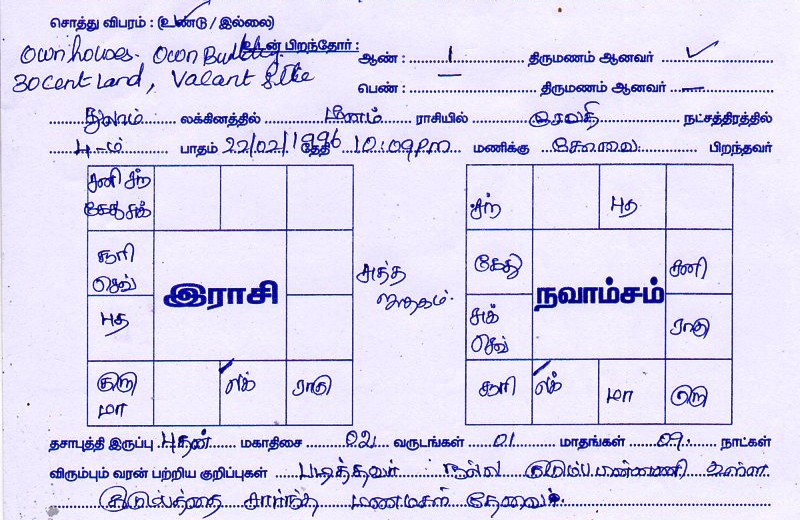 சொத்து விபரம் : (உண்டு / இல்லை)
Own houses. Own Building உடன் பிறந்தோர் : ஆண் : 1 திருமணம் ஆனவர் ✓
30 Cent Land, Vacant Site பெண் : — திருமணம் ஆனவர் —
துலாம் லக்கினத்தில் மீனம் ராசியில் ரேவதி நட்சத்திரத்தில்
4-ம் பாதம் 22/02/1996 தேதி 10:09 P.m மணிக்கு சேலம் பிறந்தவர்
சனி சந்
கேது சுக்
சூரி
செவ்
புத
குரு
மா
லக்
ராகு
இராசி
சுத்த
ஜாதகம்.
சந்
புத
கேது
சனி
சுக்
செவ்
ராகு
சூரி
லக்
மா
குரு
நவாம்சம்
தசாபுத்தி இருப்பு புதன் மகாதிசை 02 வருடங்கள் 01 மாதங்கள் 09 நாட்கள்
விரும்பும் வரன் பற்றிய குறிப்புகள் படித்தவர் நல்ல குடும்ப பின்னணி உள்ள
குடும்பத்தை சார்ந்த மணமகள் தேவை.